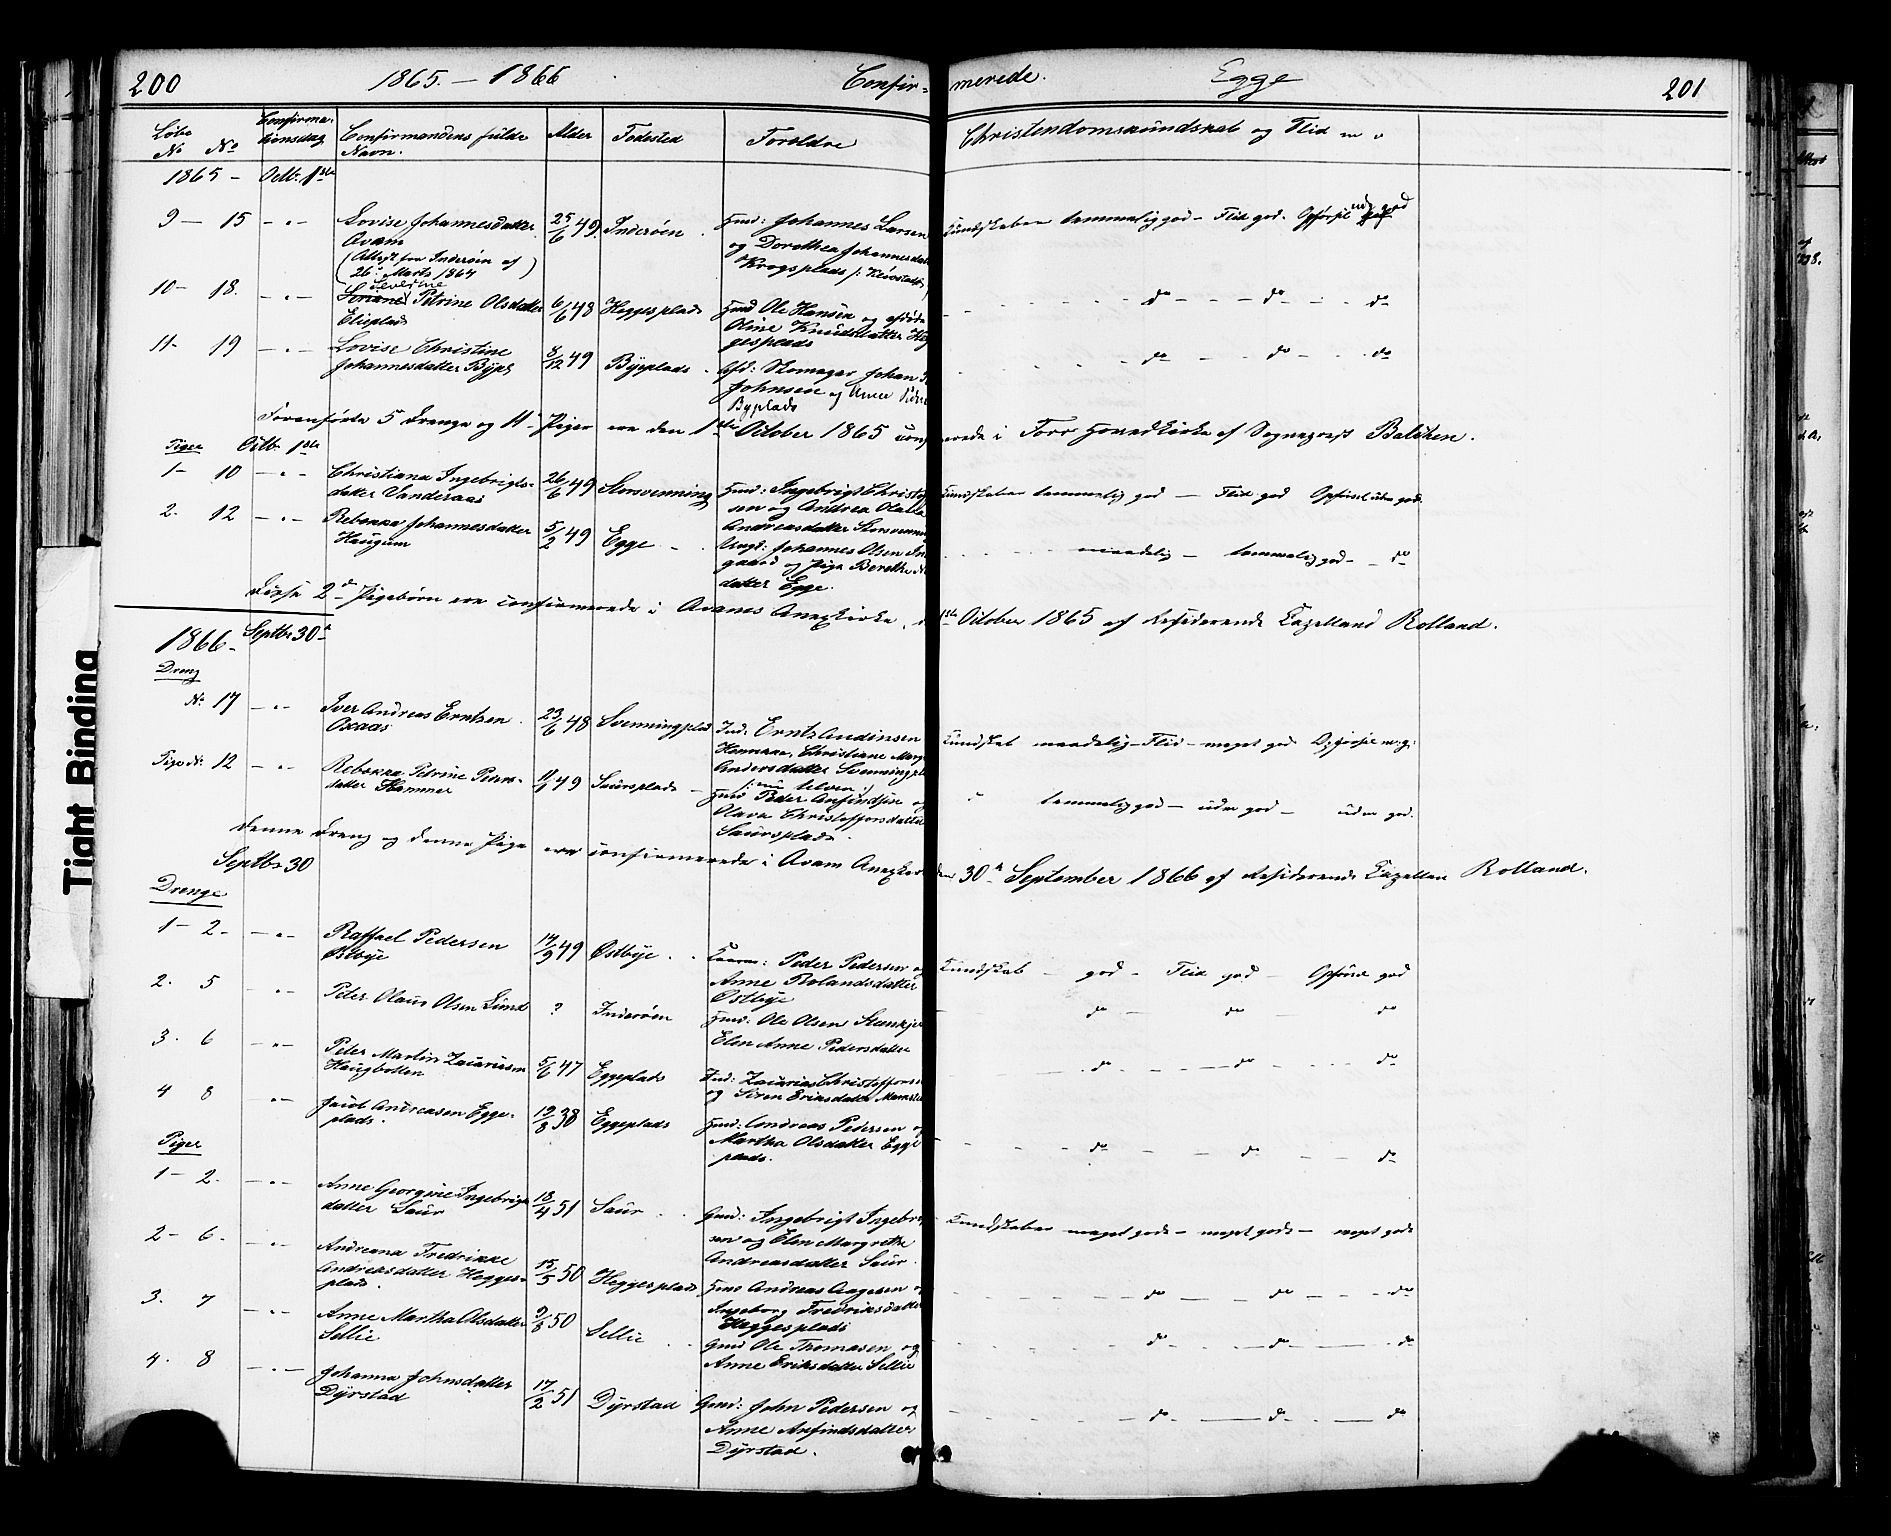 200 1865. – 1866 Confir-
merede. Egge 201
Løbe No No Confirmationsdag Confirmandens fulde Navn. Alder Fødested Foreldre Christendomskundskab og Flid m v
1865 – Octb. 1ste
9 – 15 – " – Lovise Johannesdatter 25/6 49. Inderøen. Gmd: Johannes Larsen Kundskaber temmelig god – Flid god. Opførsel god
Qvam og Dorothea Johannesdat
(Attest fra Inderøen af Krogsplads
26. Marts 1864)
10 – 18. – " – Severine Petrine Olsdatter 6/6 48 Heggesplads Hmd Ole Hansen og afdøde do – do – do
Elieplads Oline Knudsdatter Heg
gesplads
11 – 19 – " – Lovise Christine 8/12 49 Byeplads. Afd: Skomager Johan do – do – do
Johannesdatter Bypl Johnsen og Anne
Byplads
Foranførte 5 Drenge og 11 Piger ere den 1ste October 1865 conf
merede i For Hovedkirke af Sognepræst Balchen.
Piger Octb. 1ste
1 – 10 – " – Christiana Ingebrigts- 26/6 49 Storsvenning Hmd: Ingebrigt Christof Kundskaber temmelig god – Flid god Opførsel god.
datter Vanderaas sen og Andrea Olava
Andreasdatter Storsvenning
2. 12 – " – Rebekka Johannesdatter 5/2 49 Egge – Ungk: Johannes Olsen maadelig – temmelig god – do
Haugum gaard og Pige Berethe
datter Egge.
Disse 2de Pigebørn ere confirmerede i Qvams Anexkirke, d 1ste October 1865 af residerende Capellan Rolland.
1866. Septbr 30te
Dreng
No 17 – " – Iver Andreas Erntsen 23/6 48 Svenningplad Ind: Ernts Andinsen Kundskab maadelig – Flid – meget god Opførsel m.g:
Oxaas Christiane Marg
Andersdatter Svenningpl
Pige No 12 – " – Rebekka Petrine Peders- 11/1 49 Saursplads – Hmd Peder Anfindsen og " temmelig god – god – god.
datter Hammer Olava Christoffersdatter
Saursplads
Denne Dreng og denne Pige ere confirmerede i Qvam Anexkirke den 30te September 1866 af residerende Capellan Rolland.
Septbr 30
Drenge
1 – 2 – – " – Raffael Pedersen 14/9 49 Østbye. Peder Pedersen og Kundskab – god – Flid god – Opførsel god
Østbye Anne Rolandsdatter
Østbye
2. 5 – " – Peter Olaus Olsen Lund ? Inderøen Hmd: Ole Olsen Steenkjer do – do – do
Elen Anne Pedersdatter
3. 6 – " – Peter Martin Zacariasen 5/6 47 Eggeplads Ind: Zacarias Christoffersen do – do – do
Haugbotten og Siren Eriksdatter
4 8 – " – Jacob Andreasen Egge- 19/8 38 Eggeplads Hmd: Andreas Pedersen og do – do – do
plads. Martha Olsdatter Egge
plads.
Piger
1 – 2. – " – Anne Georgine Ingebrigts 18/4 51 Saur. Gmd: Ingebrigt Ingebrigt Kundskaber meget god – meget god – meget god
datter Saur sen og Elen Margrethe
Andreasdatter Saur.
2 – 6. – " – Andreana Fredrikke 15/5 50 Heggesplads Hmd Andreas Aagesen og do – do – do
Andreasdatter Hegges- Ingeborg Fredriksdatter
plads. Heggesplads
3. 7 – " – Anne Martha Olsdatter 9/8 50 Sellie. Gmd Ole Thomasen og do – do – do
Sellie Anne Eriksdatter Sellie
4. 8 – " – Johanna Johnsdatter 17/2 51 Dyrstad Gmd: John Pedersen og do – do – do
Dyrstad Anne Anfindsdatter
Dyrstad.
Tight Binding